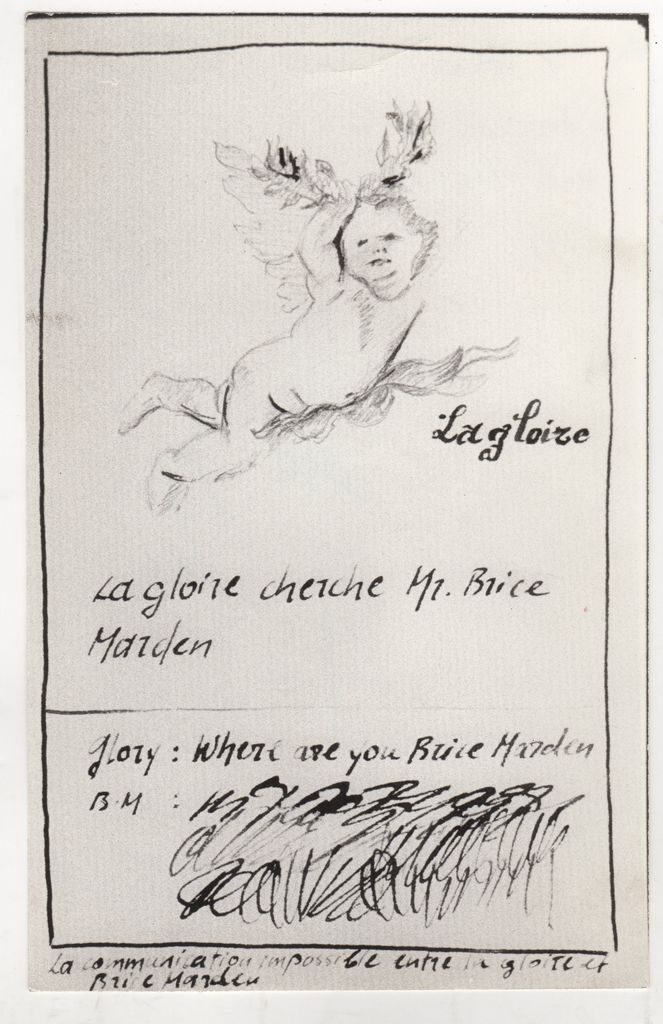 La gloire
La gloire cherche Mr. Brice
Marden
Glory : Where are you Brice Marden
B.M :
La communication impossible entre la gloire et
Brice Marden